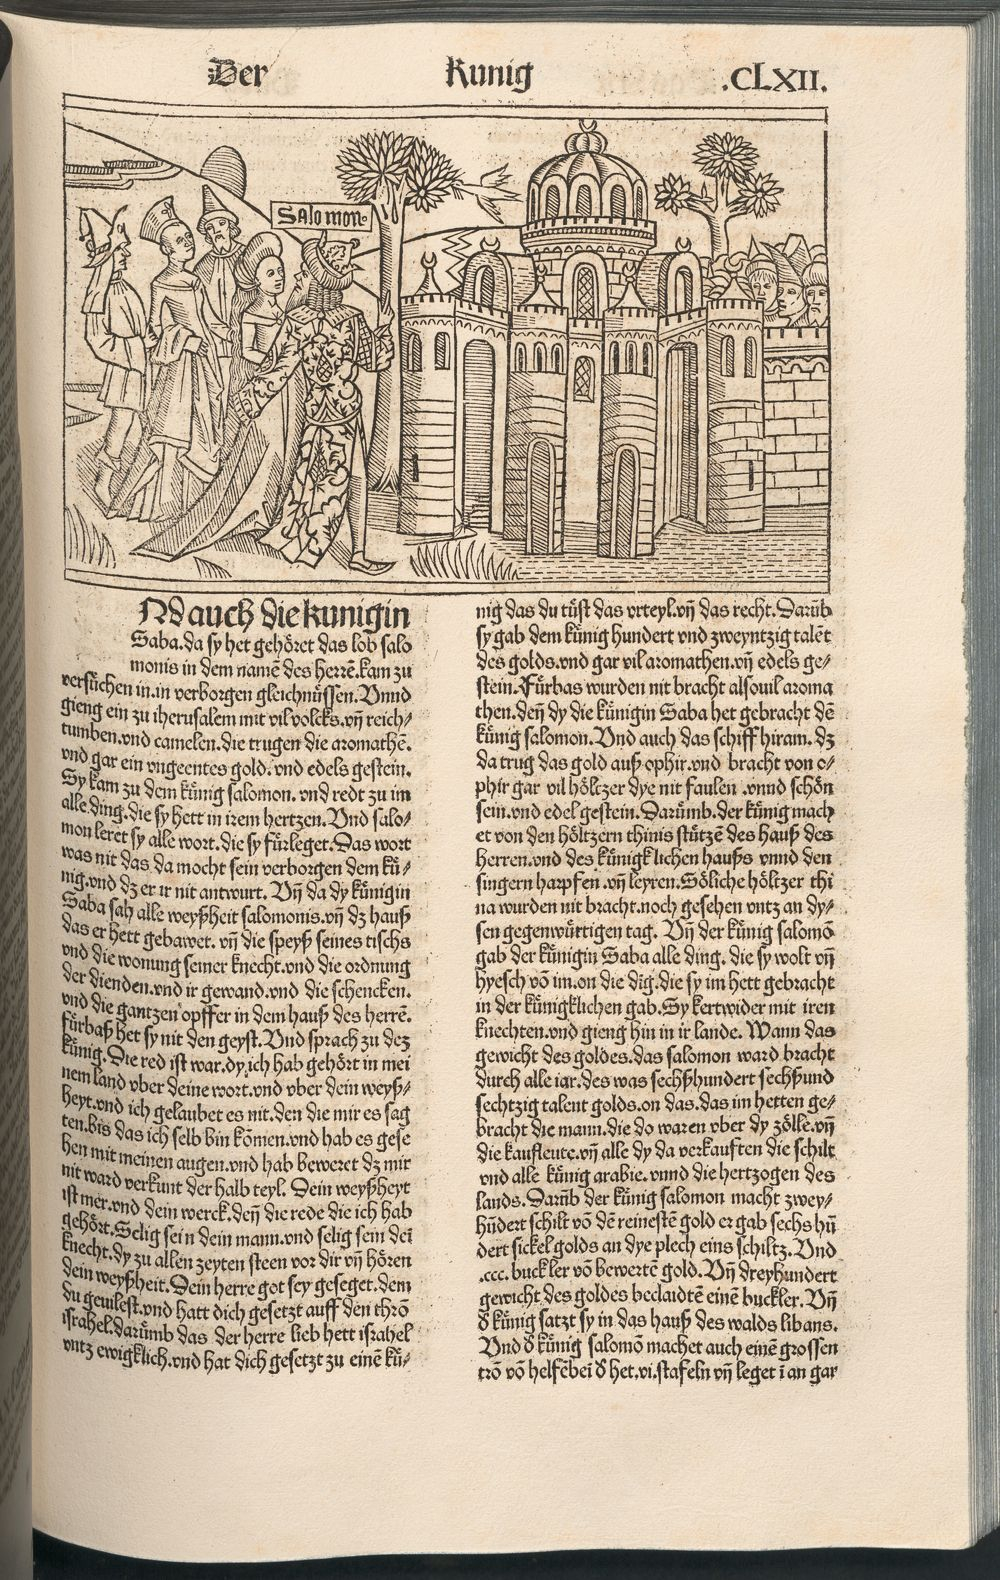 Der Kunig .CLXII.
Salomon.
Nd auch die kunigin
Saba.da sy het gehöret das lob salo
monis in dem namē des herrē.kam zu
versůchen in.in verborgen gleichnüssen. Vnnd
gieng ein zu iherusalem mit vil volcks.vn̄ reich⸗
tumben.vnd camelen.die trugen die aromathē.
vnd gar ein vngeentes gold.vnd edels gestein.
Sy kam zu dem künig salomon. vnd redt zu im
alle.ding.die sy hett in irem hertzen. Vnd salo⸗
mon leret sy alle wort.die sy fürleget.Das wort
was nit das da mocht sein verborgen dem kü⸗
nig.vnd dz er ir nit antwurt. Vn̄ da dy künigin
Saba sah alle weyßheit salomonis.vn̄ dz hauß
das er hett gebawet. vn̄ die speyß seines tischs
vnd die wonung seiner knecht.vnd die ordnung
der dienden.vnd ir gewand.vnd die schencken.
vnd die gantzen opffer in dem hauß des herrē.
fürbaß het sy nit den geyst. Vnd sprach zu dez
künig. Die red ist war.dy,ich hab gehört in mei
nem land vber deine wort.vnd vber dein weyß⸗
heyt.vnd ich gelaubet es nit.den die mir es sag
ten.bis das ich selb bin kōmen.vnd hab es gese
hen mit meinen augen.vnd hab beweret dz mir
nit ward verkunt der halb teyl. Dein weyßheyt
ist mer.vnd dein werck.den̄ die rede die ich hab
gehört.Selig sein dein mann.vnd selig sein dei
knecht.dy zu allen zeyten steen vor dir vn̄ hören
dein weyßheit.Dein herre got sey geseget.dem
du geuilest.vnd hatt dich gesetzt auff den thrō
israhel.darümb das der herre lieb hett israhel
vntz ewigklich.vnd hat dich gesetzt zu einē kü⸗
nig das du tüst das vrteyl.vn̄ das recht.Darūb
sy gab dem künig hundert vnd zweyntzig talēt
des golds.vnd gar vil aromathen.vn̄ edels ge⸗
stein.Fürbas wurden nit bracht alsouil aroma
then.den̄ dy die künigin Saba het gebracht dē
künig salomon.Vnd auch das schiff hiram. dz
da trug das gold auß ophir.vnd bracht von o⸗
phir gar vil höltzer dye nit faulen .vnnd schön
sein.vnd edel gestein.Darümb.der künig mach
et von den höltzern thinis stützē des hauß des
herren.vnd des künigklichen haußs vnnd den
singern harpfen.vn̄ leyren.Söliche höltzer thi
na wurden nit bracht.noch gesehen vntz an dy⸗
sen gegenwürtigen tag. Vn̄ der künig salomō
gab der künigin Saba alle ding. die sy wolt vn̄
hyesch vō im.on die dīg.die sy im hett gebracht
in der künigklichen gab.Sy kert wider mit iren
knechten.vnd gieng hin in ir lande. Wann das
gewicht des goldes.das salomon ward bracht
durch alle iar.des was sechßhundert sechßund
sechtzig talent golds.on das.das im hetten ge⸗
bracht die mann.die do waren vber dy zölle.vn̄
die kaufleute.vn̄ alle dy da verkauften die schilt
vnd alle künig arabie.vnnd die hertzogen des
lands. Darūb der künig salomon macht zwey⸗
hūdert schilt vō dē reinestē gold er gab sechs hū
dert sickel golds an dye plech eins schiltz. Vnd
.ccc. buckler vō bewertē gold. Vn̄ dreyhundert
gewicht des goldes beclaidtē einē buckler. Vn̄
d̄ künig satzt sy in das hauß des walds libans.
Vnd d̄ künig salomō machet auch einē grossen
trō vō helfēbei d̄ het.vi.stafeln vn̄ leget i an gar